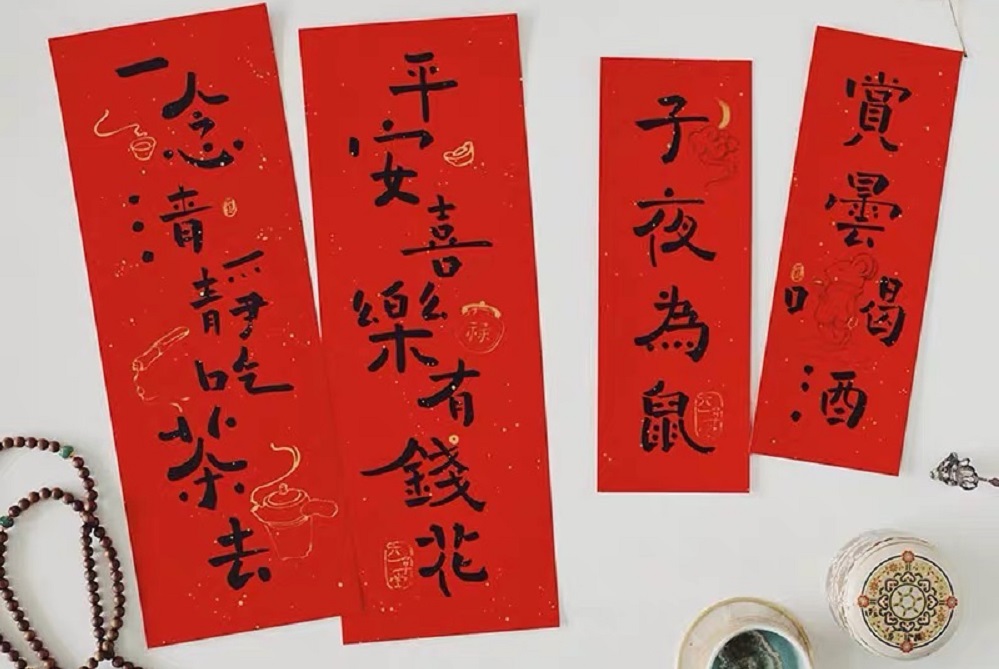 一念清靜吃茶去
平安喜樂有錢花
祿
子夜為鼠
賞曇喝酒